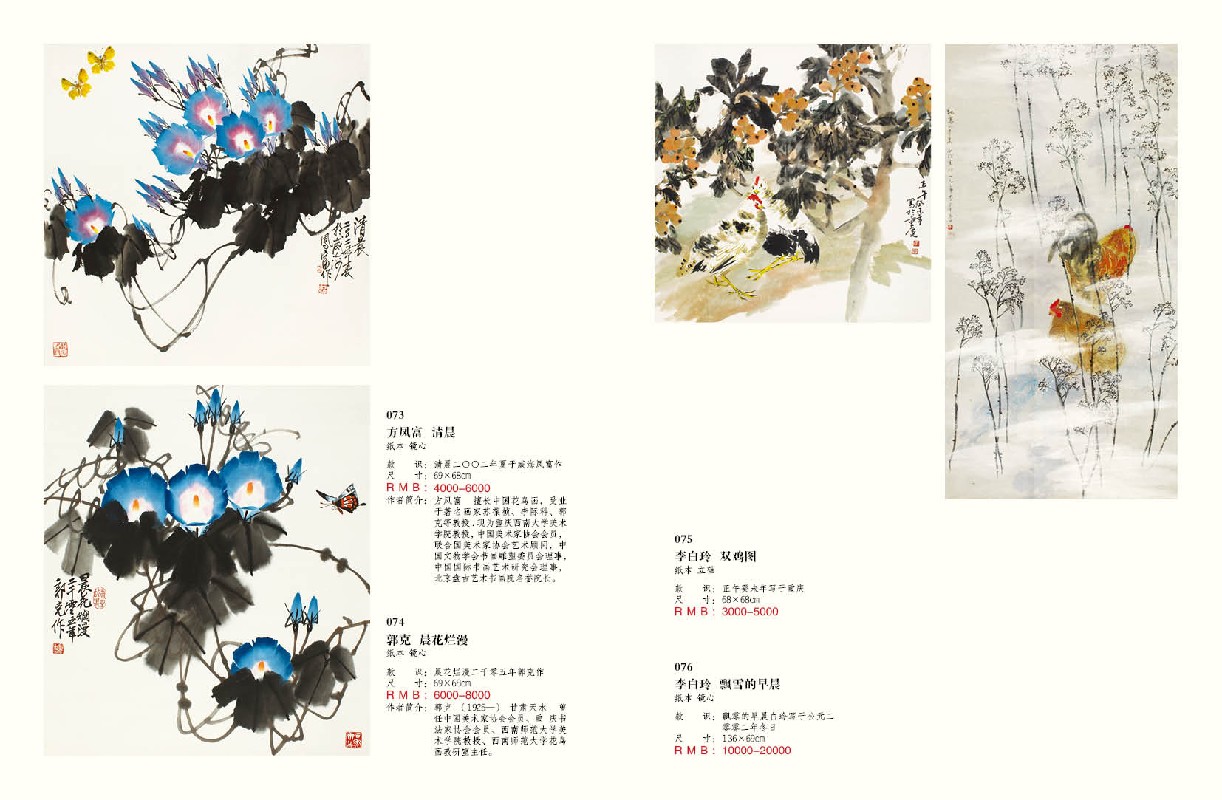 清晨
晨花烂漫
二千零五年
郭克作
073
方凤富 清晨
纸本 镜心
款 识：清晨二〇〇二年夏于威海凤富作
尺 寸：69×68cm
RMB：4000-6000
作者简介：方凤富 擅长中国花鸟画，受业
于著名画家苏葆桢、李际科、郭
克等教授，现为重庆西南大学美术
学院教授，中国美术家协会会员，
联合国美术家协会艺术顾问，中
国文物学会书画雕塑委员会理事，
中国国际书画艺术研究会理事，
北京盘古艺术书画院名誉院长。
074
郭克 晨花烂漫
纸本 镜心
款 识：晨花烂漫二千零五年郭克作
尺 寸：69×69cm
RMB：6000-8000
作者简介：郭克 （1925—） 甘肃天水 曾
任中国美术家协会会员、重庆书
法家协会会员、西南师范大学美
术学院教授、西南师范大学花鸟
画教研室主任。
075
李白玲 双鸡图
纸本 立轴
款 识：正午癸未年写于重庆
尺 寸：68×68cm
RMB：3000-5000
076
李白玲 飘雪的早晨
纸本 镜心
款 识：飘零的早晨白玲写于公元二
零零二年冬日
尺 寸：136×69cm
RMB：10000-20000